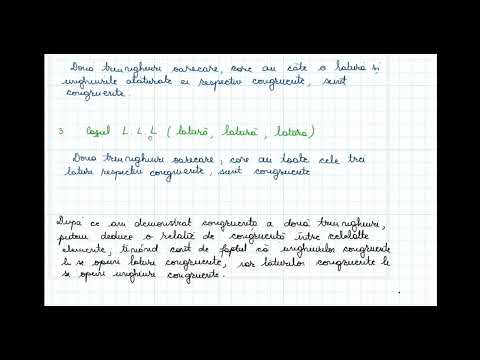 Două triunghiuri oarecare, care au câte o latură și
unghiurile alăturate ei respectiv congruente, sunt
congruente.
3 Cazul L.L.L (latură, latură, latură)
Două triunghiuri oarecare, care au toate cele trei
laturi respectiv congruente, sunt congruente
După ce am demonstrat congruența a două triunghiuri,
putem deduce o relație de congruență între celelalte
elemente, ținând cont de faptul că unghiurilor congruente
li se opun laturi congruente, iar laturilor congruente li
se opun unghiuri congruente.